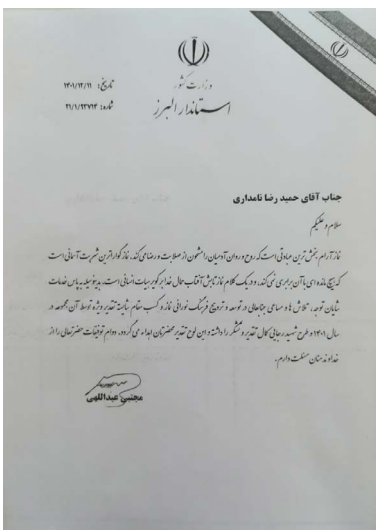 وزارت کشور
استاندار البرز
تاریخ: ۱۴۰۱/۱۲/۱۱
شماره: ۲۱/۱/۹۳۷۹۴
جناب آقای حمید رضا نامداری
سلام علیکم
نماز آرام بخش ترین عبادتی است که روح و روان آدمیان را مشحون از صلابت و رضا می کند. نماز گواراترین شربت آسمانی است
که هیچ مائده ای با آن برابری نمی کند، و در یک کلام نماز تابش آفتاب جمال خدا بر کویر حیات انسانی است. بدینوسیله به پاس خدمات
شایان توجه، تلاش ها و مساعی جنابعالی در توسعه و ترویج فرهنگ نورانی نماز و کسب مقام شایسته تقدیر ویژه توسط آن مجموعه در
سال ۱۴۰۱ و طرح شهید رجایی کمال تقدیر و تشکر را داشته و این لوح تقدیر محضرتان اهداء می گردد. دوام توفیقات حضرتعالی را از
خداوند منان مسئلت دارم.
مجتبی عبداللهی